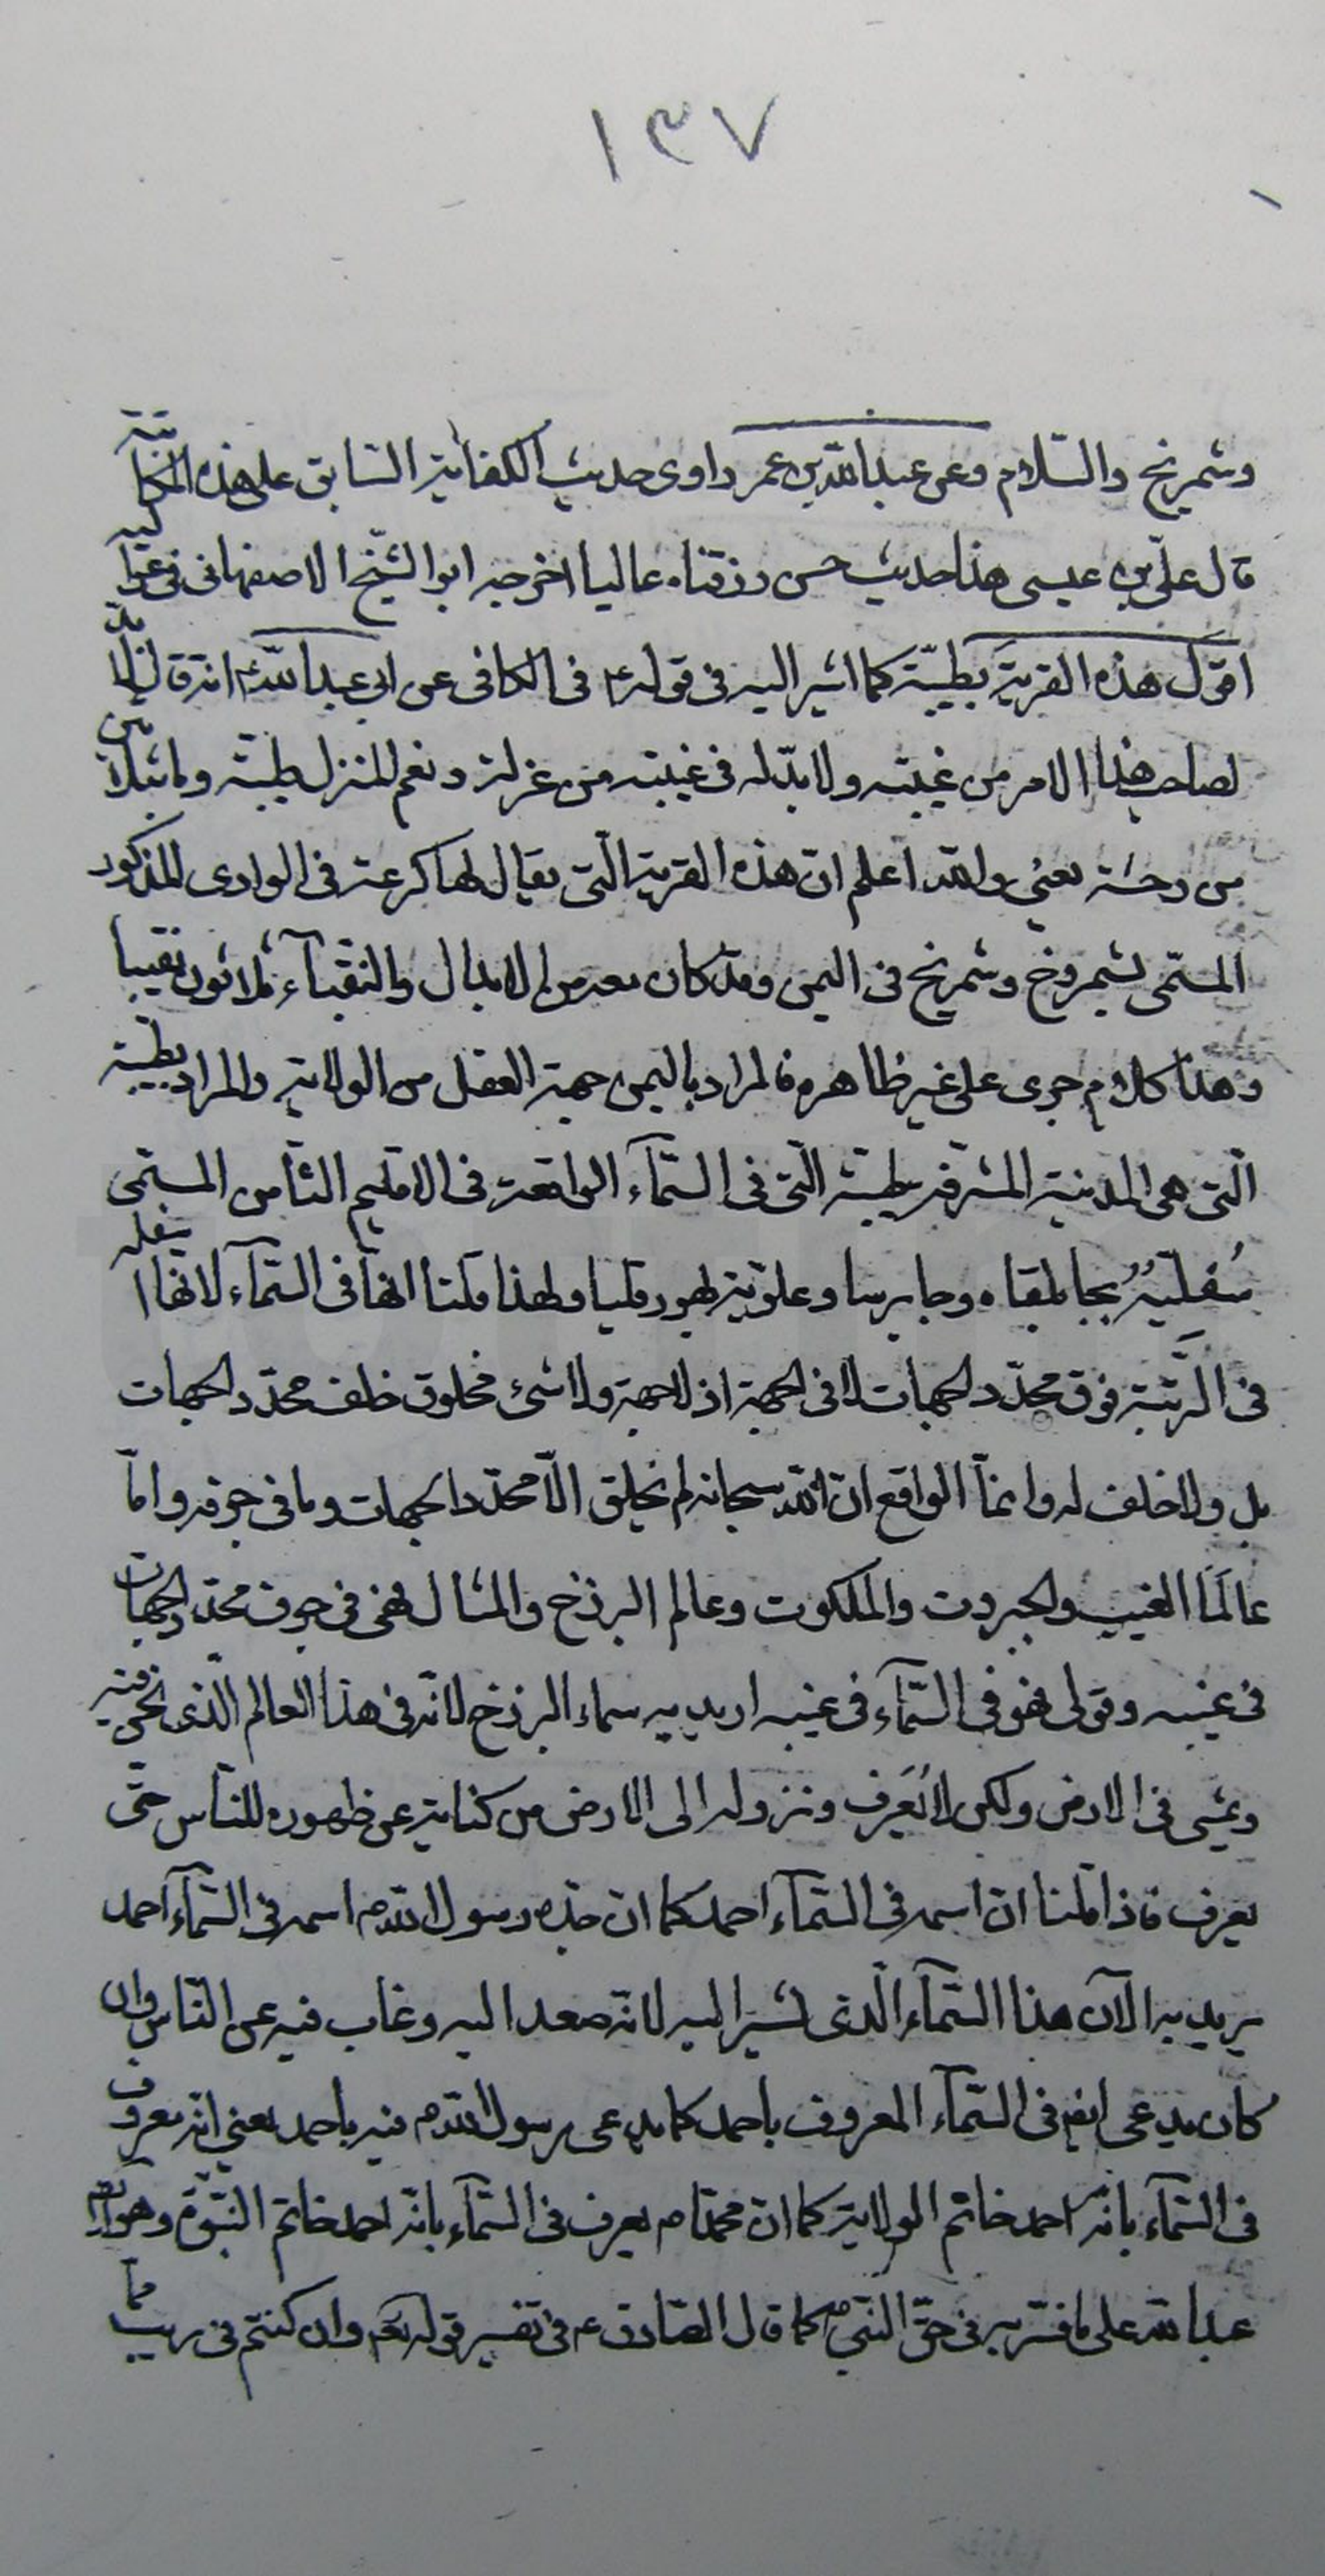 ١٣٧
وشمريخ والسّلام وعن عبدالله بن عمر راوى حديث الكفاية السّابق على هذه الحكاية
قال علىّ بن عيسى هذا حديث حسن رزقناه عاليا اخرجه ابو الشّيخ الاصفهانى فى عواليه
اقول هذه القرية بطيبة كما اشير اليه فى قوله ع فى الكافى عن ابى عبدالله ع انّه قال لا بدّ
لصاحب هذا الامر من غيبته ولا بدّ له فى غيبته من عزلة ونعم المنزل طيبة وما بثلاثين
من وحشة يعنى والله اعلم انّ هذه القرية الّتى يقال لها كرعة فى الوادى المذكور
المسمّى بشمروخ وشمريخ فى اليمن وقد كان معه من الابدال والنقبآء ثلاثون نقيبا
وهذا كلام جرى على غير ظاهره فالمراد باليمن جهة العقل من الولاية والمراد بطيبة
الّتى هى المدينة المشرّفة بطيبة الّتى فى السّمآء الواقعة فى الاقليم الثّامن المسمّى
سُفليّهُ بجابلقاه وجابرسا وعلويّه بهورقليا ولهذا قلنا انّها فى السّمآء لانّها اسفله
فى الرّتبة فوق محدّد الجهات لا فى الجهة اذ لا جهة ولا شىء مخلوق خلف محدّد الجهات
بل ولا خلف له وانّما الواقع انّ الله سبحانه لم يخلق الّا محدّد الجهات وما فى جوفه وامّا
عالَمَا الغيب والجبروت والملكوت وعالم البرزخ والمثال فهى فى جوف محدّد الجهات
فى غيبه وقولى فهو فى السّمآء فى غيبه اريد به سماء البرزخ لانّه فى هذا العالم الّذى نحن فيه
ويمشى فى الارض ولكن لا يُعَرف ونزوله الى الارض من كناية عن ظهوره للنّاس حتّى
يعرف فاذا قلنا ان اسمه فى السّمآء احمد كما ان جدّه رسول الله ص اسمه فى السّمآء احمد
يريد به الآن هذا السّمآء الّذى نشير اليه لانّه صعد اليه وغاب فيه عن النّاس وان
كان يدعى ايضا فى السّمآء المعروف باحمد كما يدعى رسول الله ص فيه باحمد يعنى انّه معروف
فى السّمآء بانّه احمد خاتم الولاية كما انّ محمّدا ص يعرف فى السّمآء بانّه احمد خاتم النّبوّة وهو
عبدالله على ما فسّر به فى حقّ النّبىّ ص كما قال الصّادق ع فى تفسير قوله تعالى وان كنتم فى ريب ممّا